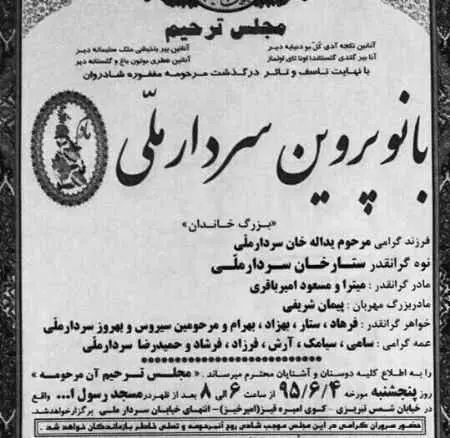 مجلس ترحیم
آنانین نکجه آدی گل بو دنیایه دیر
آنالین بیر باخیشی ملک سلیمانه دیر
آنا بیر گلدی گلستاندا اونا تای اولماز
آنالین عطری بوتون باغ و گلستانه دیر
با نهایت تاسف و تاثر درگذشت مرحومه مغفوره شادروان
بانو پروین سردار ملّی
«بزرگ خاندان»
فرزند گرامی مرحوم یداله خان سردارملّی
نوه گرانقدر ستارخان سردارملّی
مادر گرانقدر : میترا و مسعود امیرباقری
مادربزرگ مهربان : پیمان شریفی
خواهر گرانقدر : فرهاد ، ستار ، بهزاد ، بهرام و مرحومین سیروس و بهروز سردارملّی
عمه گرامی : سامی ، سیامک ، آرش ، فرزاد ، فرشاد و حمیدرضا سردارملّی
را به اطلاع کلیه دوستان و آشنایان محترم میرساند . « مجلس ترحیم آن مرحومه »
روز پنجشنبه مورخه ۹۵/۶/۴ از ساعت ۶ الی ۸ بعد از ظهر در مسجد رسول ا... واقع
در خیابان شمس تبریزی - کوی امیره قیز(امیرخیز) - انتهای خیابان سردار ملی برگزار خواهد شد.
حضور سروران گرامی در این مجلس موجب شادی روح آنمرحومه و تسلی خاطر بازماندگان خواهد شد .